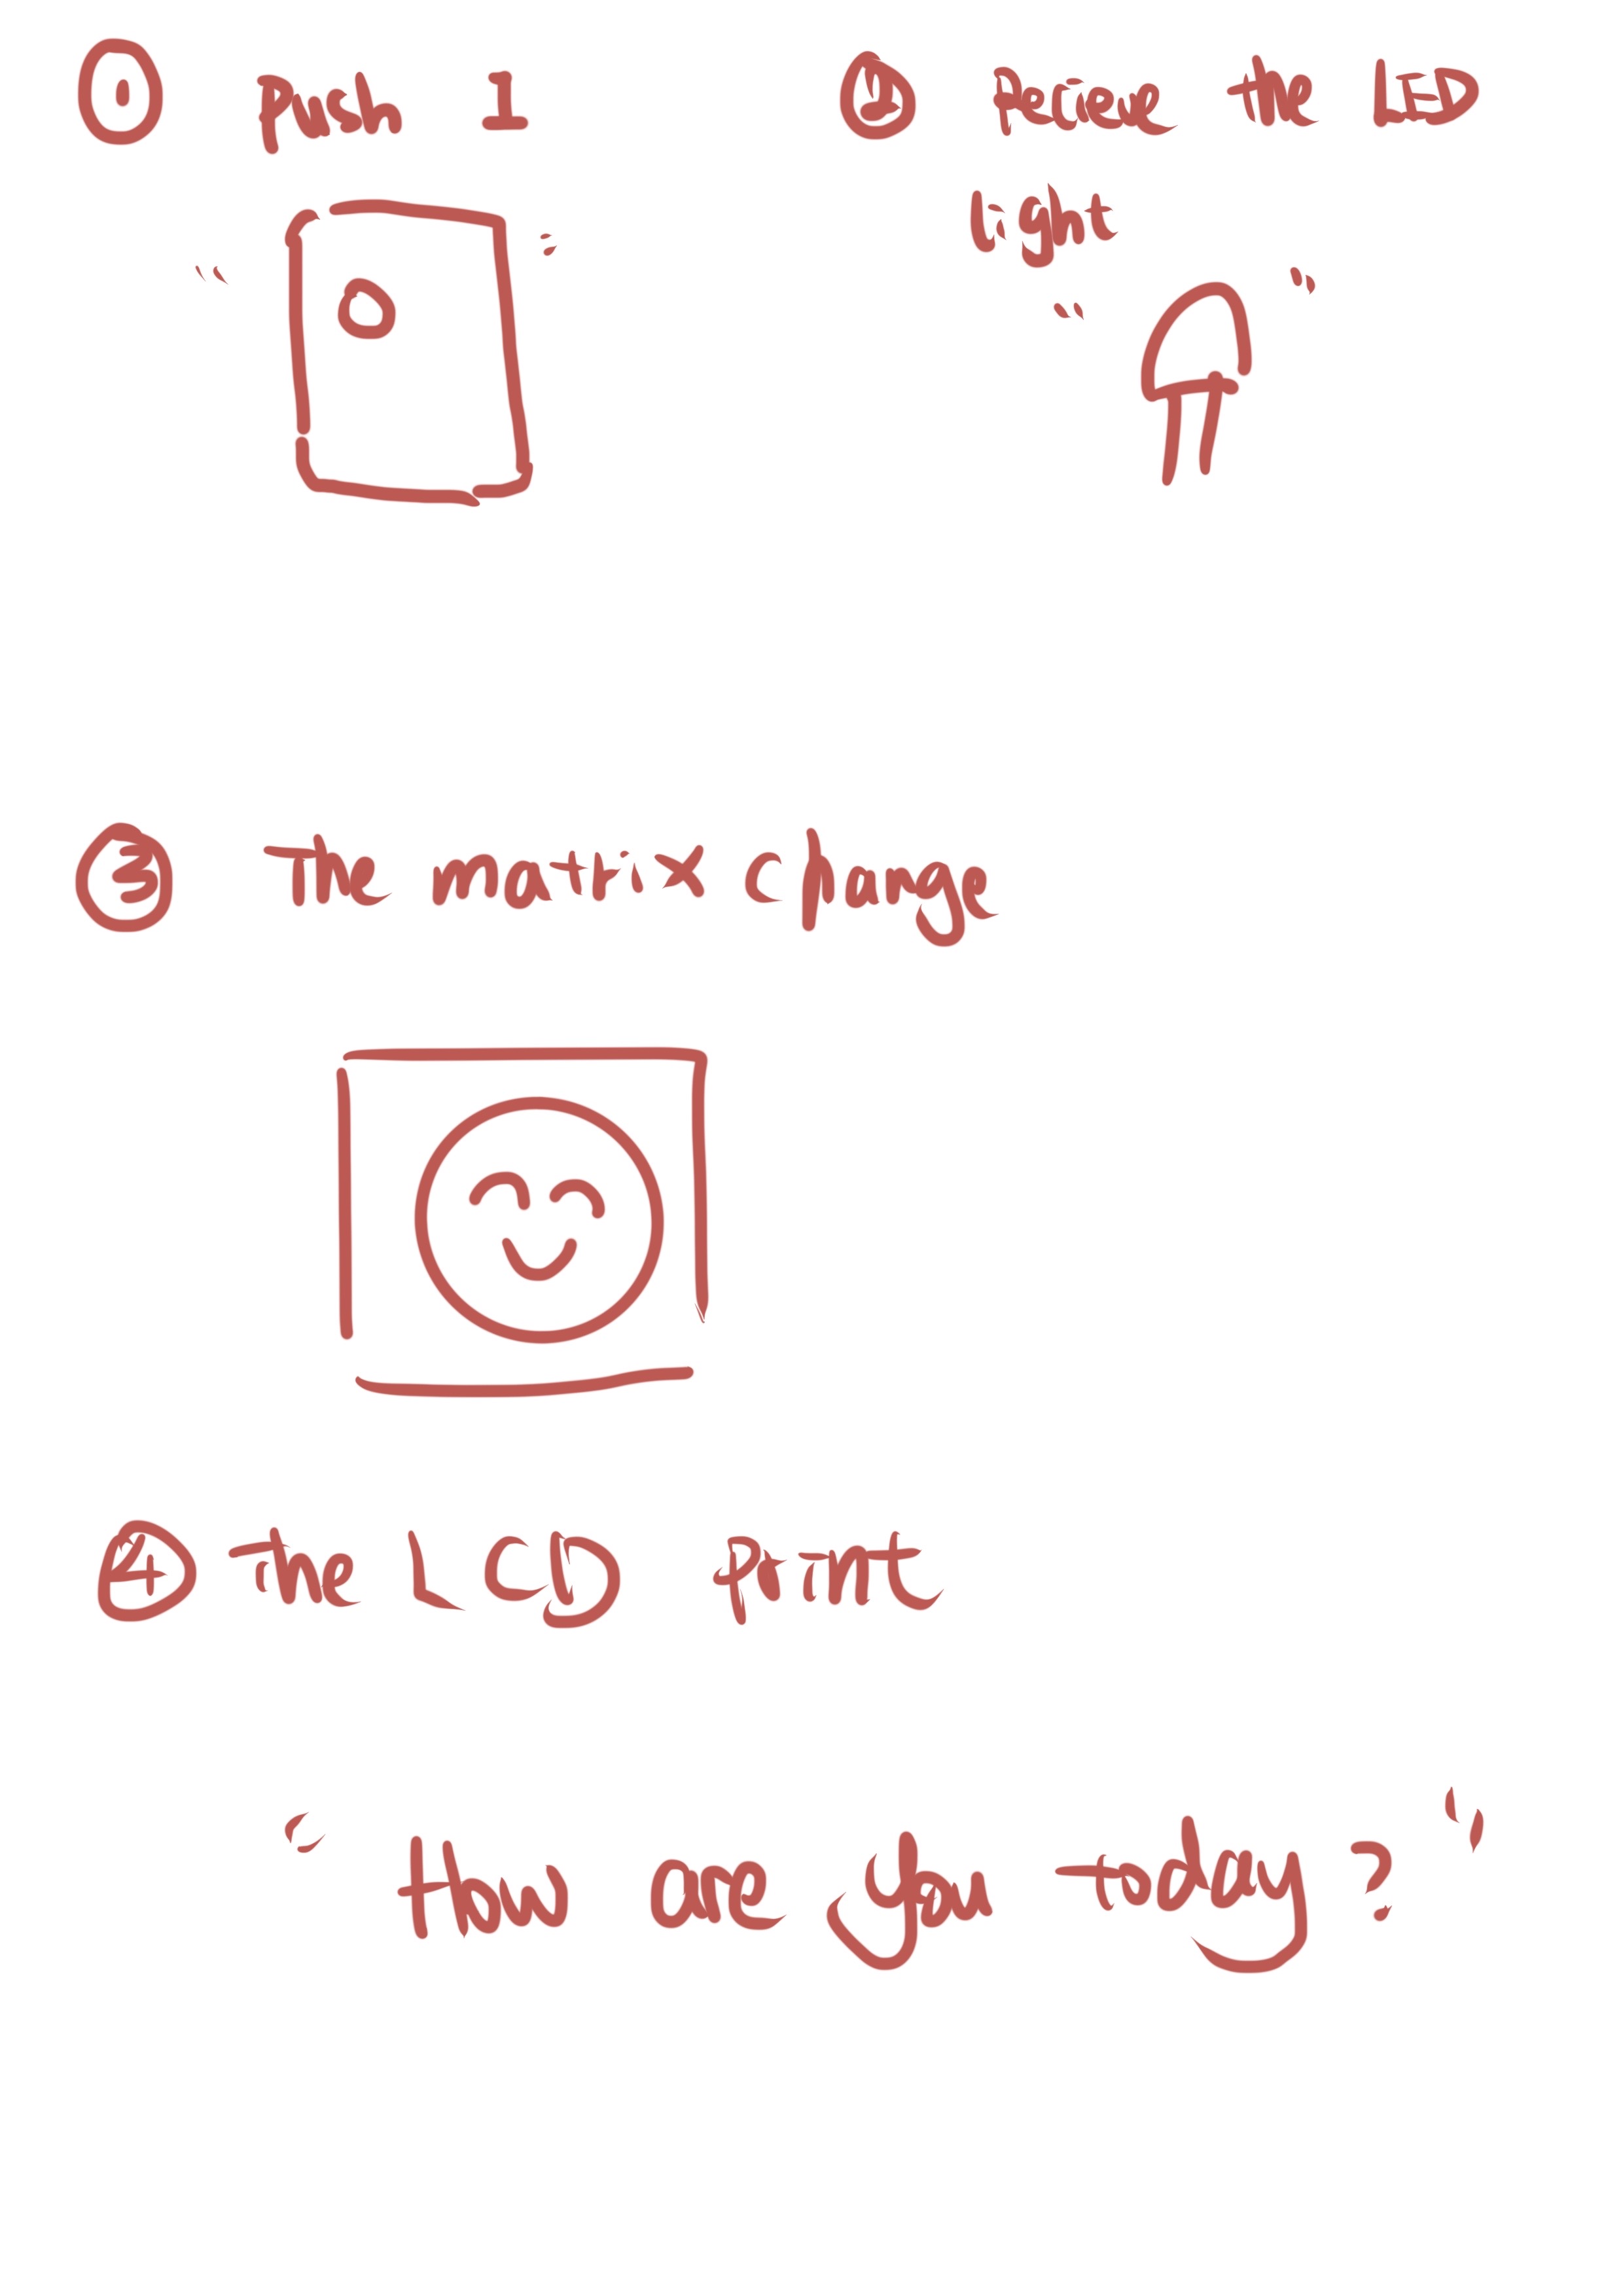 ① Push I
② the LED
light
③ The matrix change
④ the LCD print
"How are you today ?"